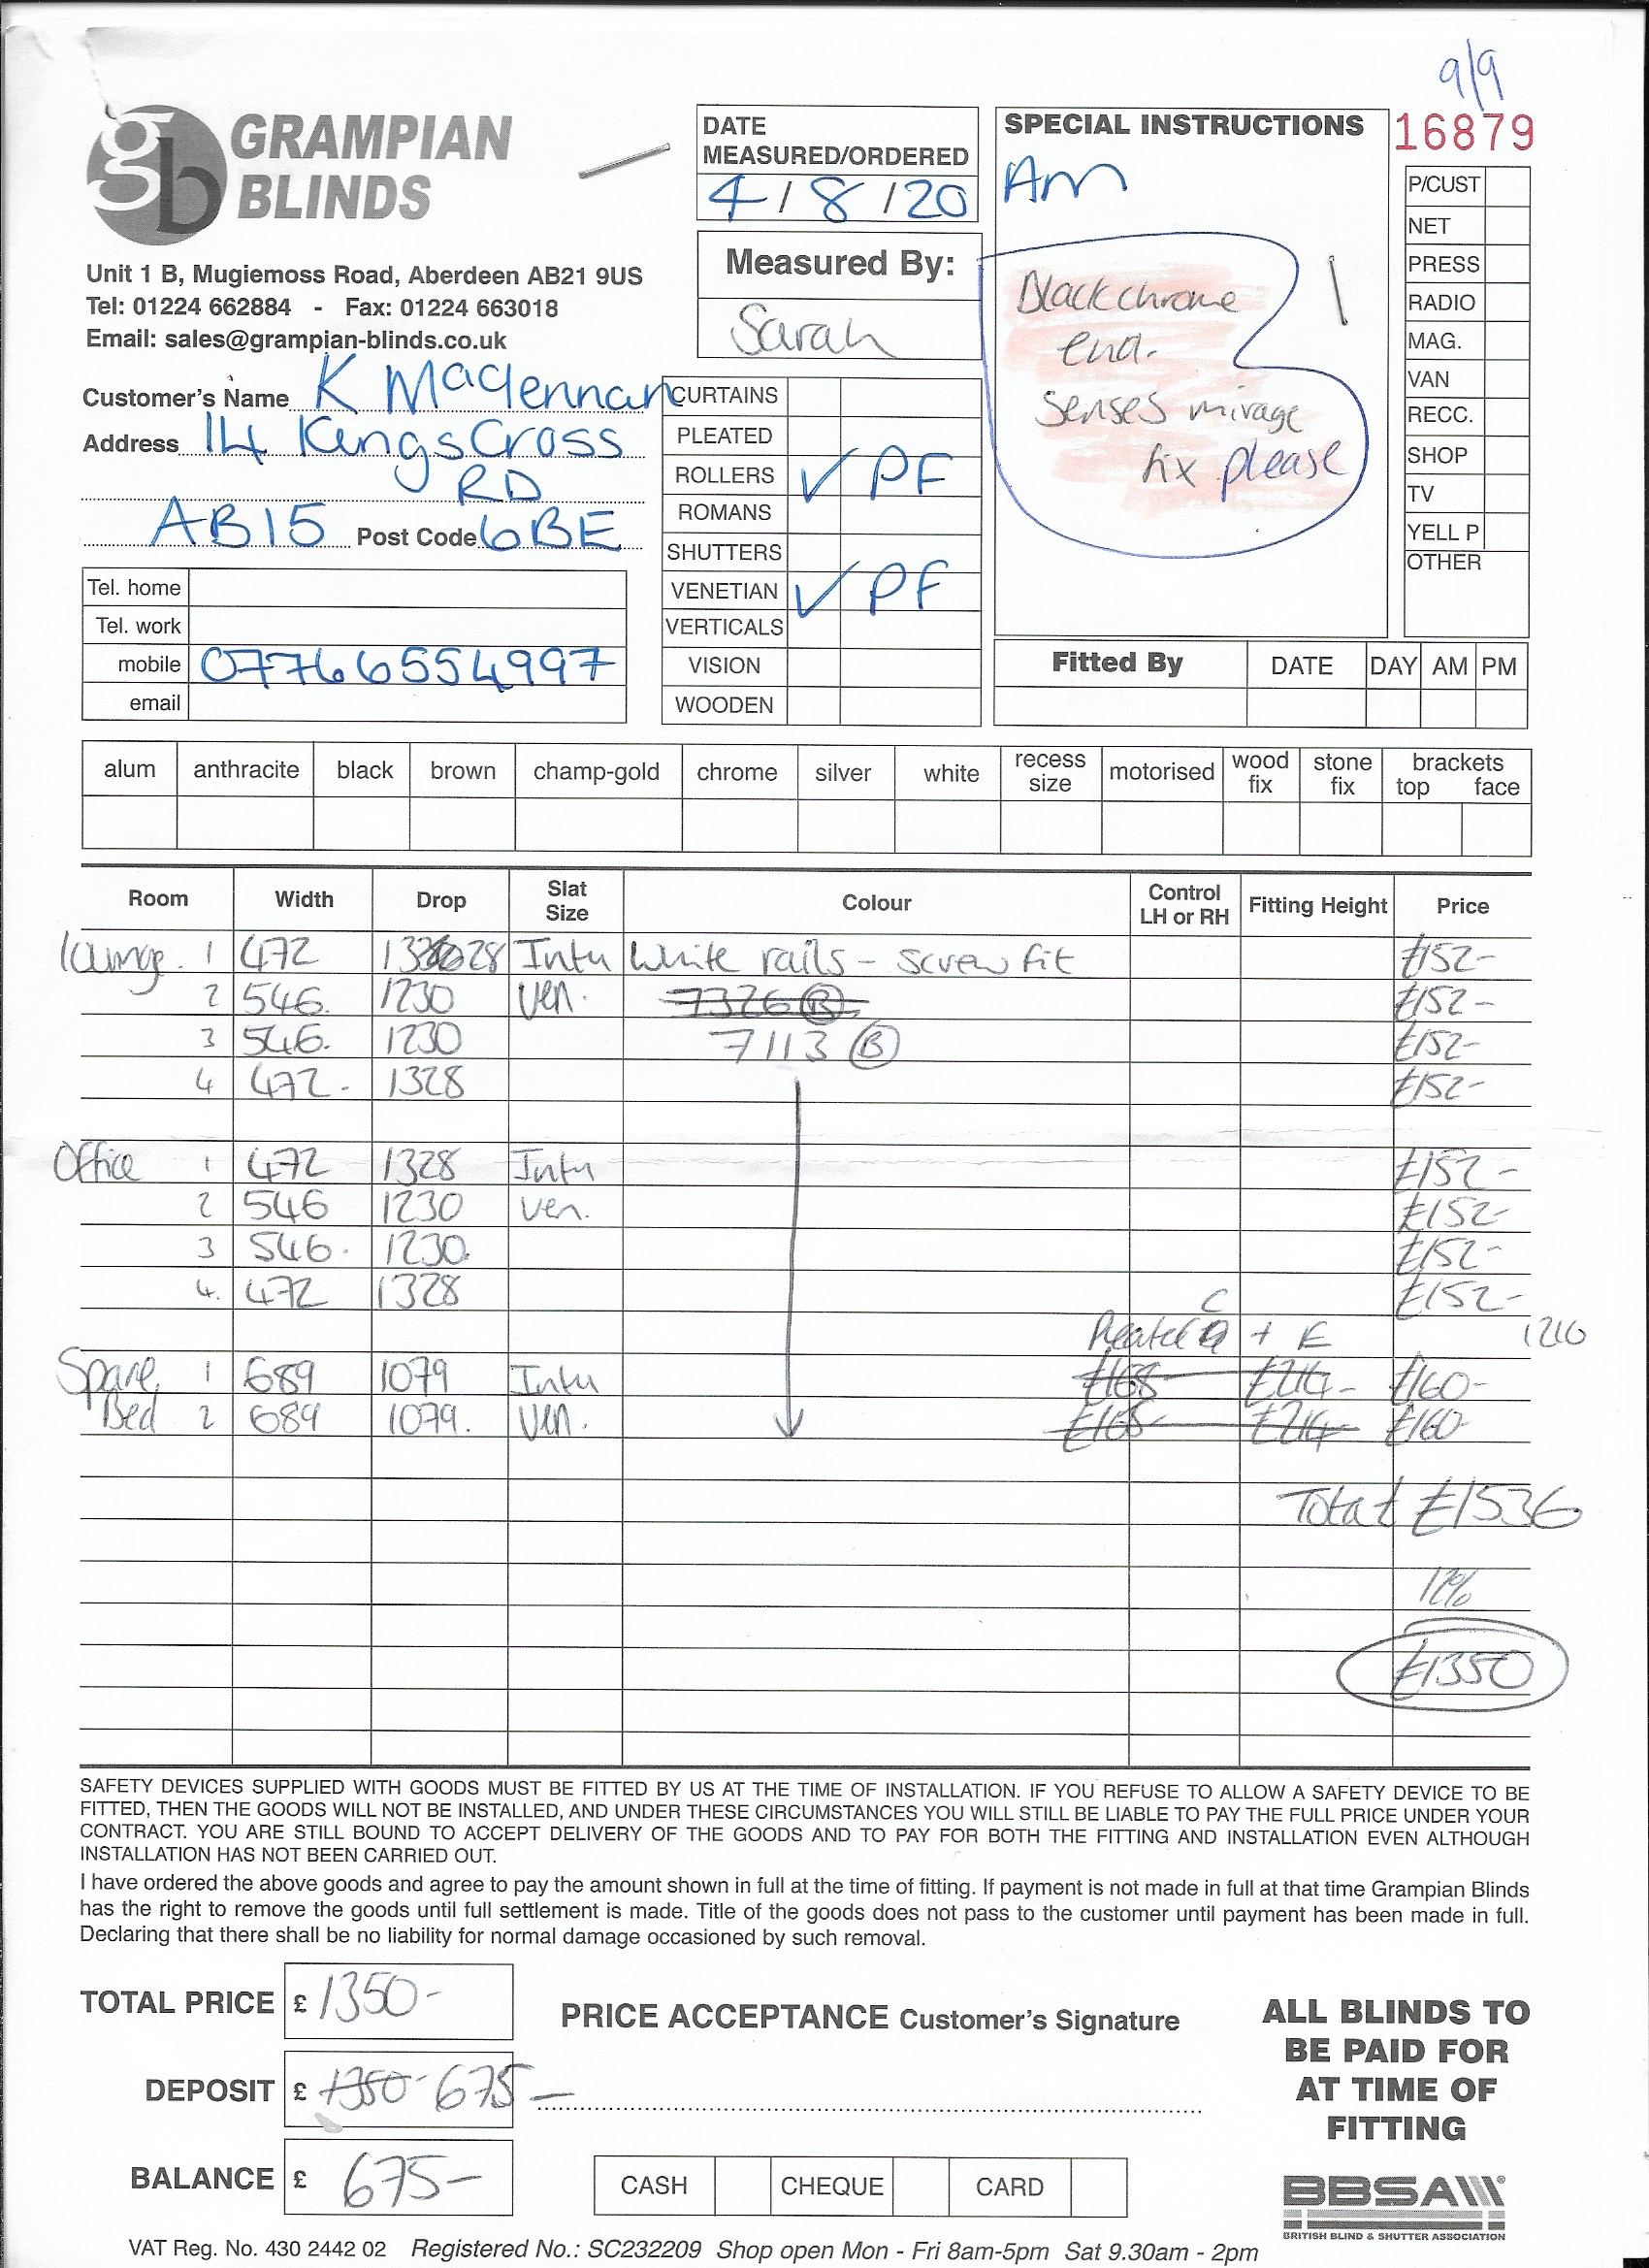 9/9
GRAMPIAN
BLINDS
Unit 1 B, Mugiemoss Road, Aberdeen AB21 9US
Tel: 01224 662884 - Fax: 01224 663018
Email: sales@grampian-blinds.co.uk
Customer's Name K Maclennan
Address 14 Kings Cross
RD
AB15 Post Code 6BE
Tel. home
Tel. work
mobile 07766554997
email
DATE
MEASURED/ORDERED
4 / 8 / 20
Measured By:
Sarah
CURTAINS
PLEATED
ROLLERS ✓ PF
ROMANS
SHUTTERS
VENETIAN ✓ PF
VERTICALS
VISION
WOODEN
SPECIAL INSTRUCTIONS
Am
Black chrome
end.
Senses mirage
fix please
16879
P/CUST
NET
PRESS
RADIO
MAG.
VAN
RECC.
SHOP
TV
YELL P
OTHER
Fitted By DATE DAY AM PM
alum anthracite black brown champ-gold chrome silver white recess size motorised wood fix stone fix brackets top face
Room Width Drop Slat Size Colour Control LH or RH Fitting Height Price
lounge. 1 472 1328 Intu White rails - screw fit £152-
2 546. 1230 Ven. 7326 (B) £152-
3 546. 1230 7113 (B) £152-
4 472. 1328 £152-
Office 1 472 1328 Intu £152-
2 546 1230 ven. £152-
3 546. 1230. £152-
4. 472 1328 £152-
C
+ E 1216
Spare 1 689 1079 Intu £168 £214- £160-
Bed 2 689 1079. Ven. £168 £214 £160-
Total £1536
12%
£1350
SAFETY DEVICES SUPPLIED WITH GOODS MUST BE FITTED BY US AT THE TIME OF INSTALLATION. IF YOU REFUSE TO ALLOW A SAFETY DEVICE TO BE
FITTED, THEN THE GOODS WILL NOT BE INSTALLED, AND UNDER THESE CIRCUMSTANCES YOU WILL STILL BE LIABLE TO PAY THE FULL PRICE UNDER YOUR
CONTRACT. YOU ARE STILL BOUND TO ACCEPT DELIVERY OF THE GOODS AND TO PAY FOR BOTH THE FITTING AND INSTALLATION EVEN ALTHOUGH
INSTALLATION HAS NOT BEEN CARRIED OUT.
I have ordered the above goods and agree to pay the amount shown in full at the time of fitting. If payment is not made in full at that time Grampian Blinds
has the right to remove the goods until full settlement is made. Title of the goods does not pass to the customer until payment has been made in full.
Declaring that there shall be no liability for normal damage occasioned by such removal.
TOTAL PRICE £ 1350-
DEPOSIT £ 1350- 675-
BALANCE £ 675-
PRICE ACCEPTANCE Customer's Signature
CASH CHEQUE CARD
ALL BLINDS TO
BE PAID FOR
AT TIME OF
FITTING
BBSA
BRITISH BLIND & SHUTTER ASSOCIATION
VAT Reg. No. 430 2442 02 Registered No.: SC232209 Shop open Mon - Fri 8am-5pm Sat 9.30am - 2pm